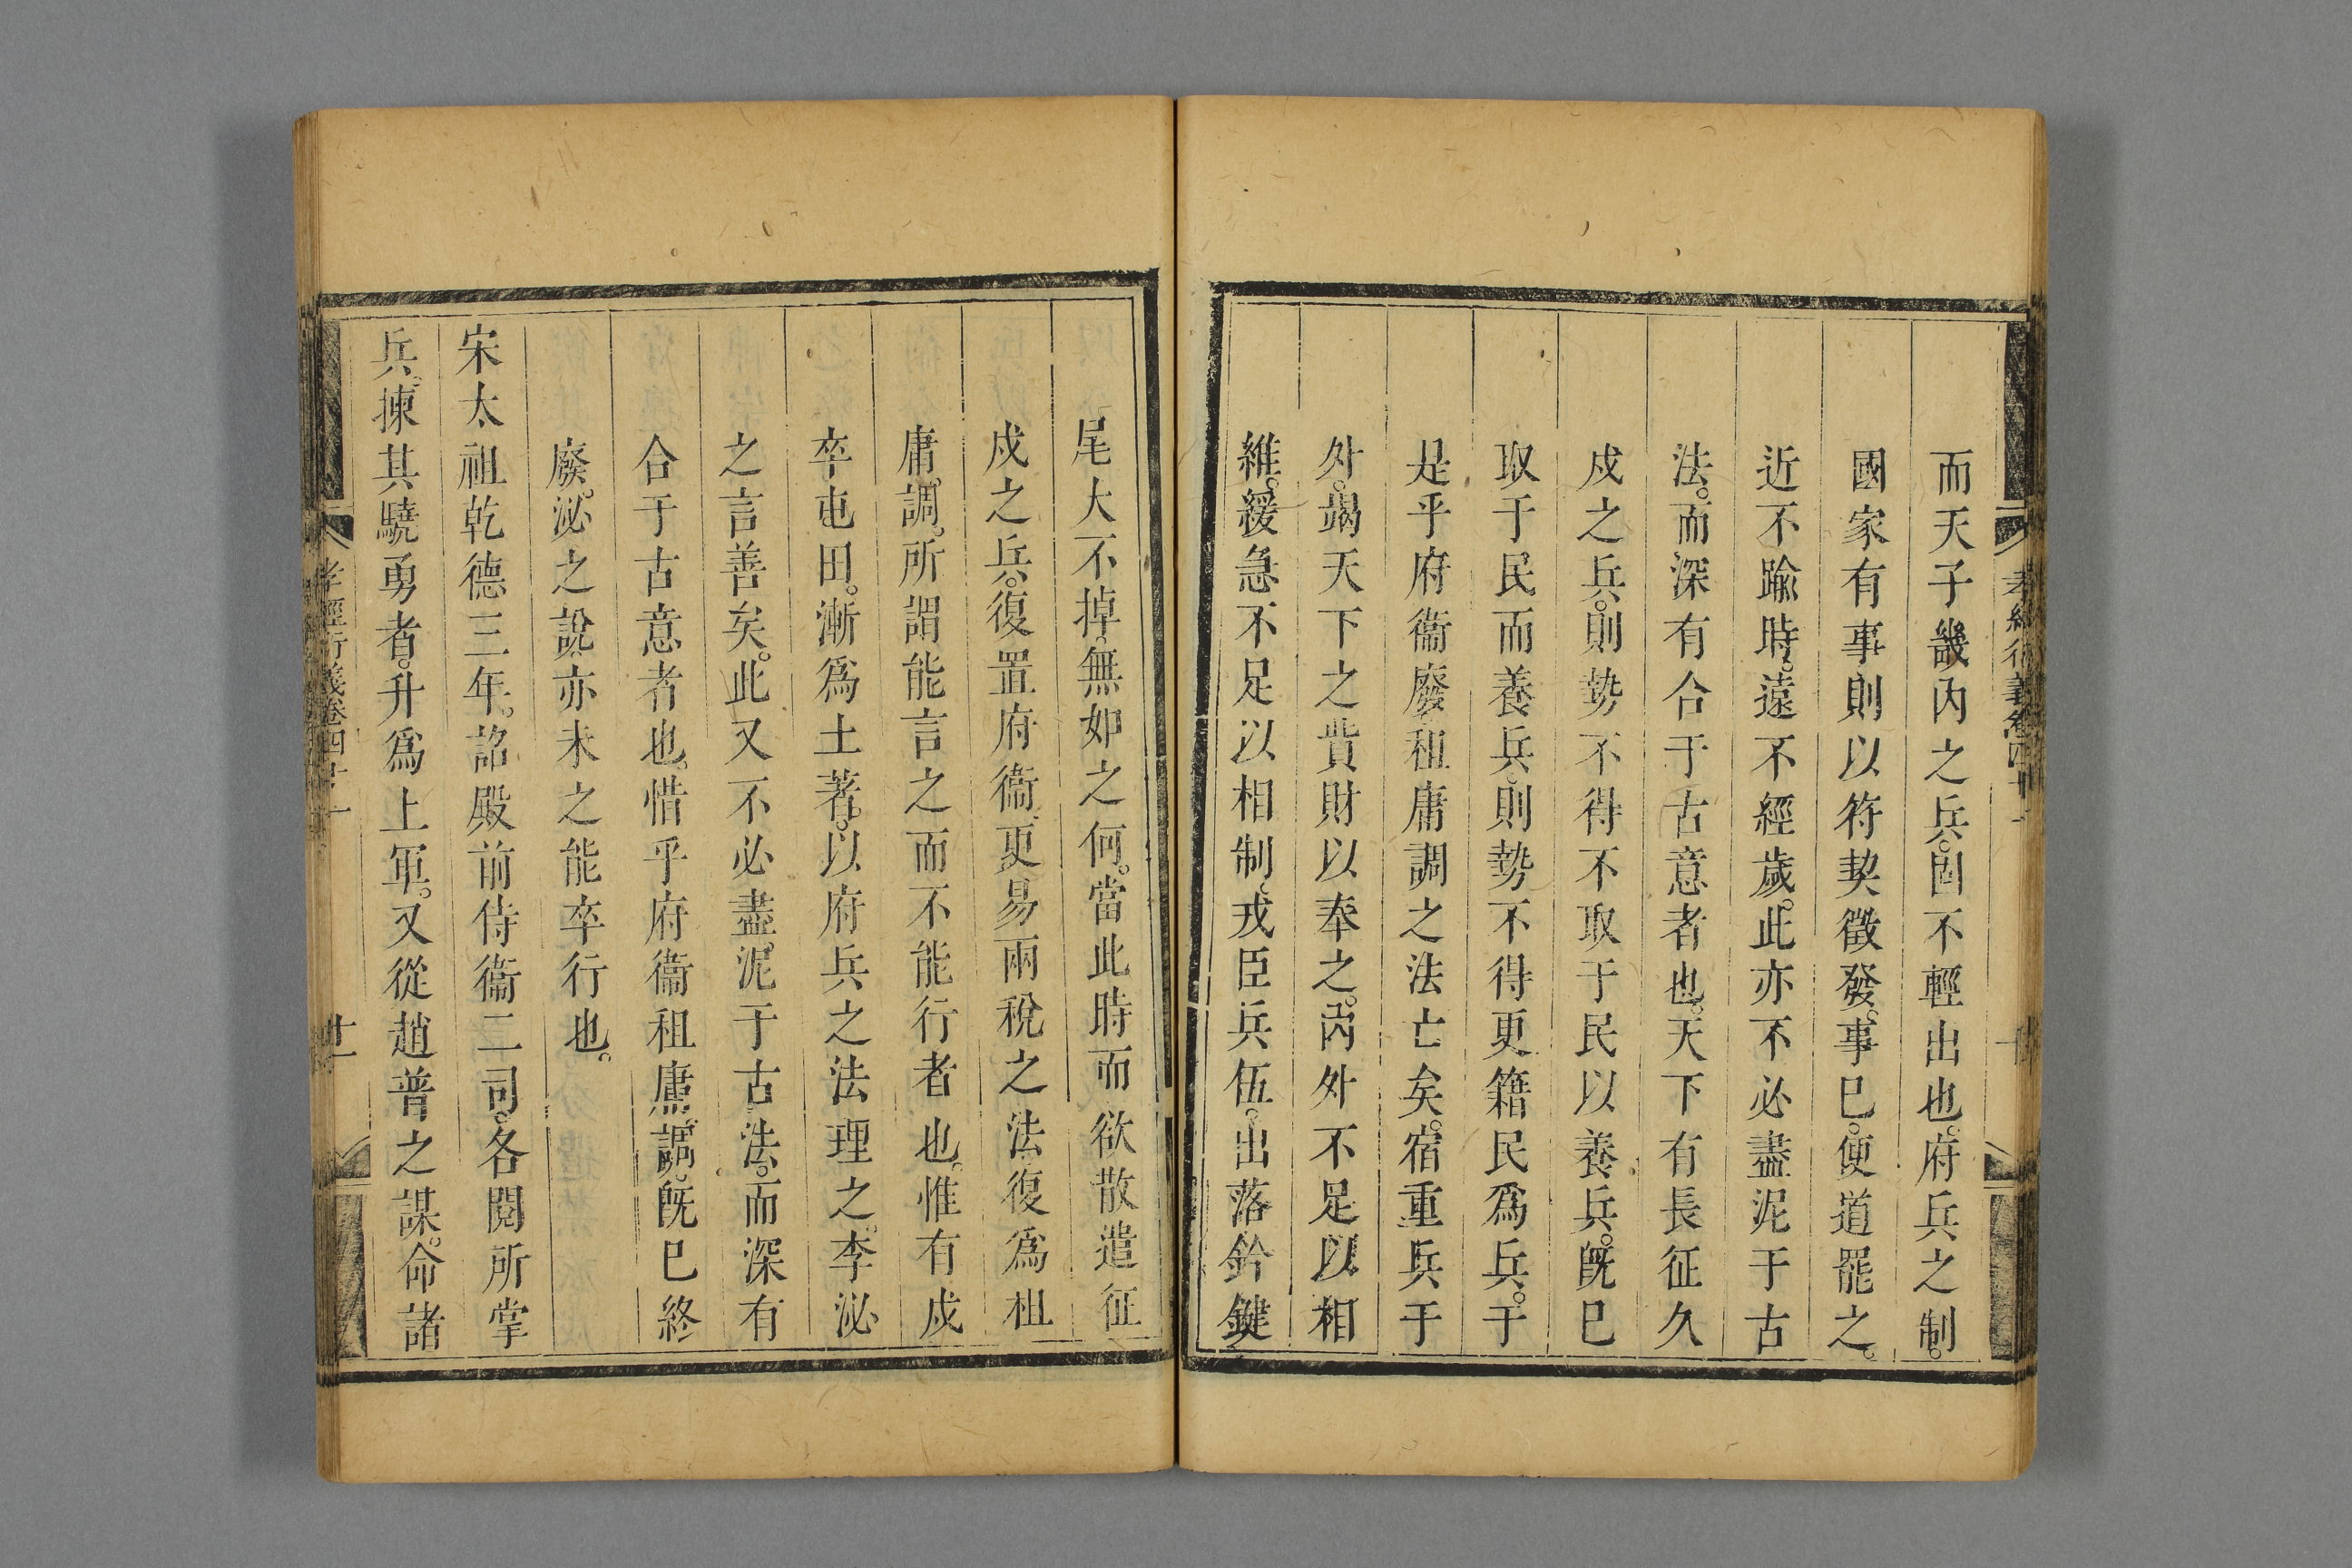 而天子畿内之兵。固不輕出也。府兵之制。
國家有事則以符契徵發。事已。便道罷之。
近不踰時。遠不經歲。此亦不必盡泥于古
法。而深有合于古意者也。天下有長征久
戍之兵。則勢不得不取于民以養兵。既已
取于民而養兵。則勢不得更籍民爲兵。于
是乎府衞廢租庸調之法亡矣。宿重兵于
外。竭天下之貲財以奉之。内外不足以相
維。緩急不足以相制。戎臣兵伍。出落鈐鍵
尾大不掉。無如之何。當此時而欲散遣征
戍之兵。復置府衞。更易兩稅之法。復爲租
庸。調。所謂能言之而不能行者也。惟有戍
卒屯田。漸爲土著。以府兵之法理之。李泌
之言善矣。此又不必盡泥于古法。而深有
合于古意者也。惜乎府衞租庸調。既已終
廢。泌之說亦未之能卒行也。
宋太祖乾德三年。詔殿前侍衞二司。各閱所掌
兵。揀其驍勇者。升爲上軍。又從趙普之謀。命諸
孝經衍義卷四十一
廿一